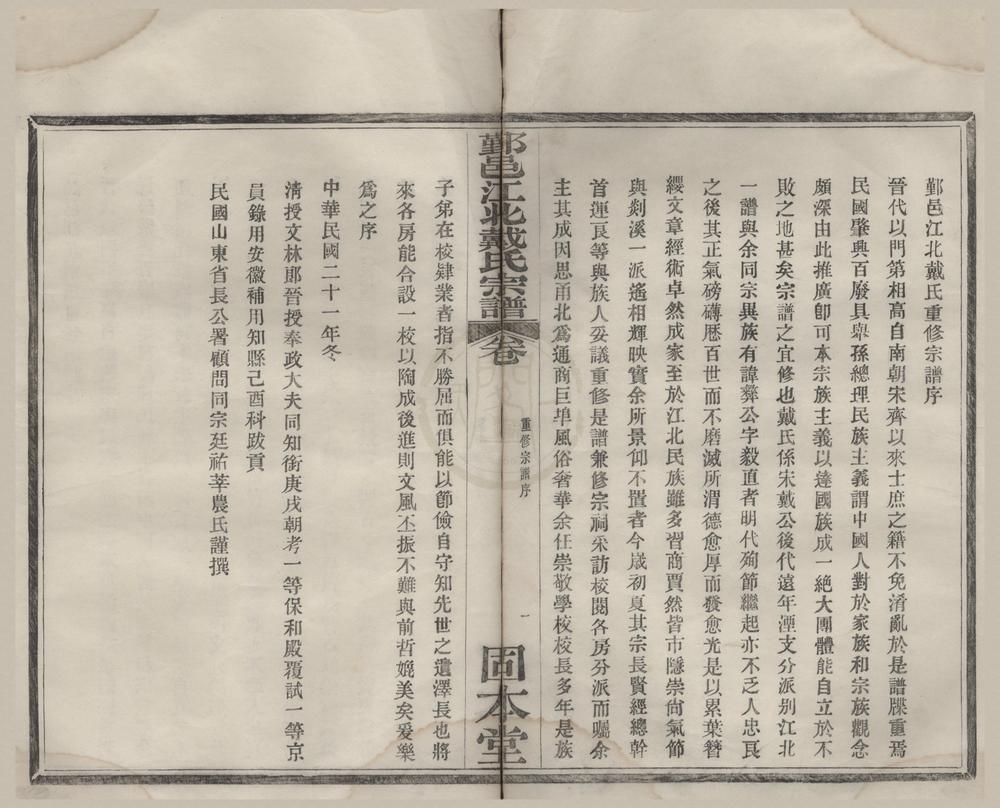 鄞邑江北戴氏重修宗譜序
晉代以門第相高自南朝宋齊以來士庶之籍不免淆亂於是譜牒重焉
民國肇興百廢具舉孫總理民族主義謂中國人對於家族和宗族觀念
頗深由此推廣卽可本宗族主義以達國族成一絕大團體能自立於不
敗之地甚矣宗譜之宜修也戴氏係宋戴公後代遠年湮支分派別江北
一譜與余同宗異族有諱彝公字毅直者明代殉節繼起亦不乏人忠良
之後其正氣磅礴歷百世而不磨滅所謂德愈厚而發愈光是以累葉簪
纓文章經術卓然成家至於江北民族雖多習商賈然皆市隱崇尙氣節
與剡溪一派遙相輝映實余所景仰不置者今歲初夏其宗長賢經總幹
首運良等與族人妥議重修是譜兼修宗祠采訪校閱各房分派而囑余
主其成因思甬北爲通商巨埠風俗奢華余任崇敬學校校長多年是族
鄞邑江北戴氏宗譜
卷
重修宗譜序
一
固本堂
子弟在校肄業者指不勝屈而俱能以節儉自守知先世之遺澤長也將
來各房能合設一校以陶成後進則文風丕振不難與前哲媲美矣爰樂
爲之序
中華民國二十一年冬
淸授文林郎晉授奉政大夫同知銜庚戌朝考一等保和殿覆試一等京
員錄用安徽補用知縣己酉科跋貢
民國山東省長公署顧問同宗廷祐莘農氏謹撰